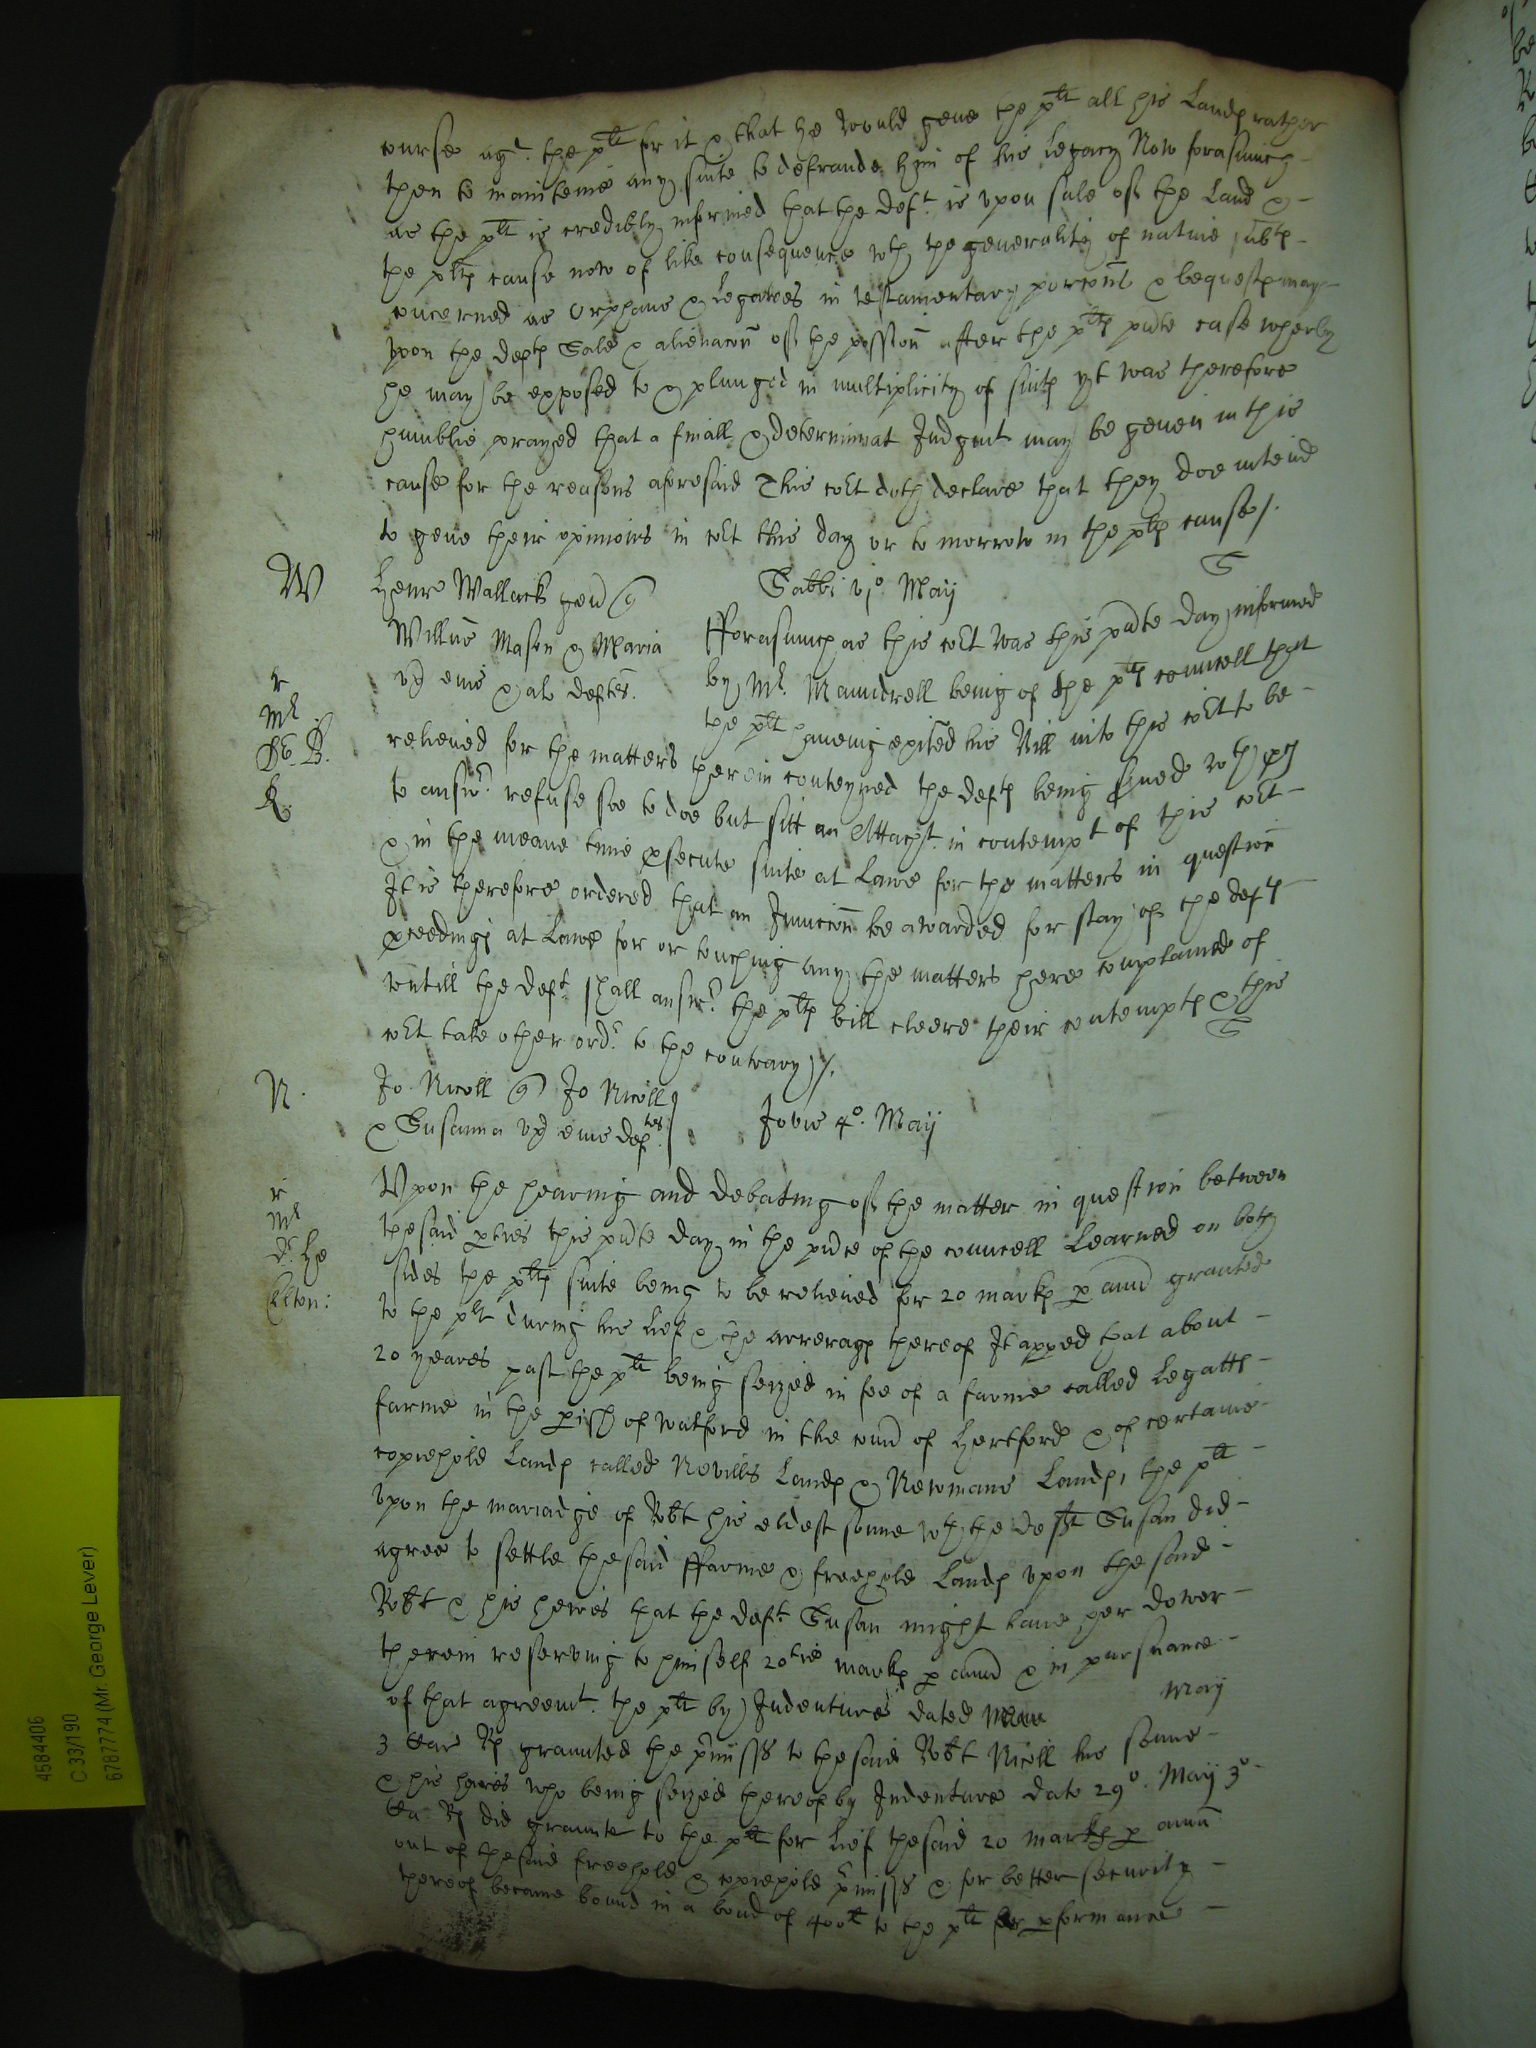 course agt. the plt for it & that he would geve the plt all his Landp rather
then to mainteine any suite to defraude him of his Legacy Now forasmuch
as the plt is credibly informed that the Deft. is upon sale of the Land &
the pltp cause now of like consequence wth the generality of nature
concerned as Orphans & Legatees in testamentary porcons & bequestp may
upon the deftp Sale & alienacon of the possion after the pltp pnte case wherby
he may be exposed to & plunged in multiplicity of suitp yt was therefore
humblie prayed that a finall & determinat Judgmt may be geven in this
cause for the reasons aforesaid This cort doth declare that they doe intend
to geve their opinions in cort this day or to morrow in the pltp cause/.
W
Henr Wallack gen Q
Willus Mason & Maria
ux eius & al deftes.
Sabbi vjo May
fforasmuch as this cort was this pnte day informed
by Mr. Maundrell being of the pltp councell that
the plt haveing exited his Bill into this cort to be
r
Mr
R.
relieved for the matters therein conteyned the deftp being served wth ps
to answr. refuse soe to doe but sitt an Attacht. in contempt of this cort
& in the meane time psecute suite at Lawe for the matters in question
It is therefore ordered that an Junccon be awarded for stay of the deftp
pceedings at Lawe for or touching any the matters here complained of
untill the deft. shall answr. the pltp bill cleere their contemptp & this
cort take other ordr. to the contrary/.
N.
Jo Nicoll Q Jo Nicoll
& Susanna ux eius deftes.
Jovis 4o. May
r
Mr
Upon the hearing and debating of the matter in question between
the said pties this pnte day in the pnce of the councell Learned on both
sides the pltp suite being to be relieved for 20 markp p ann granted
to the plt during his lief & the arreragp thereof It apped that about
20 yeares past the plt being seized in fee of a farme called Legatts
farme in the pish of watford in the coun of Hertford & of certaine
copiehold Landp called Nevills Landp & Newmans Landp, the plt
upon the mariadge of Robt his eldest sonne wth the deft Susan did
agree to settle the said ffarme & freehold Landp upon the said
Robt & his heires that the deft. Susan might have her dower
therein reserving to himself 20tie markp p ann & in pursuance
of that agreemt. the plt by Indenture dated May
3 Car Rp graunted the pmisss to the said Robt Nicoll his sonne
& his heires who being seized thereof by Indenture date 29o. May 3o
Ca. Rp did graunte to the plt for lief the said 20 markp p ann
out of the said freehold & copiehold pmisss & for better security
thereof became bound in a bond of 400lt to the plt for pformance
4584406
C 33/190
6787774 (Mr. George Lever)